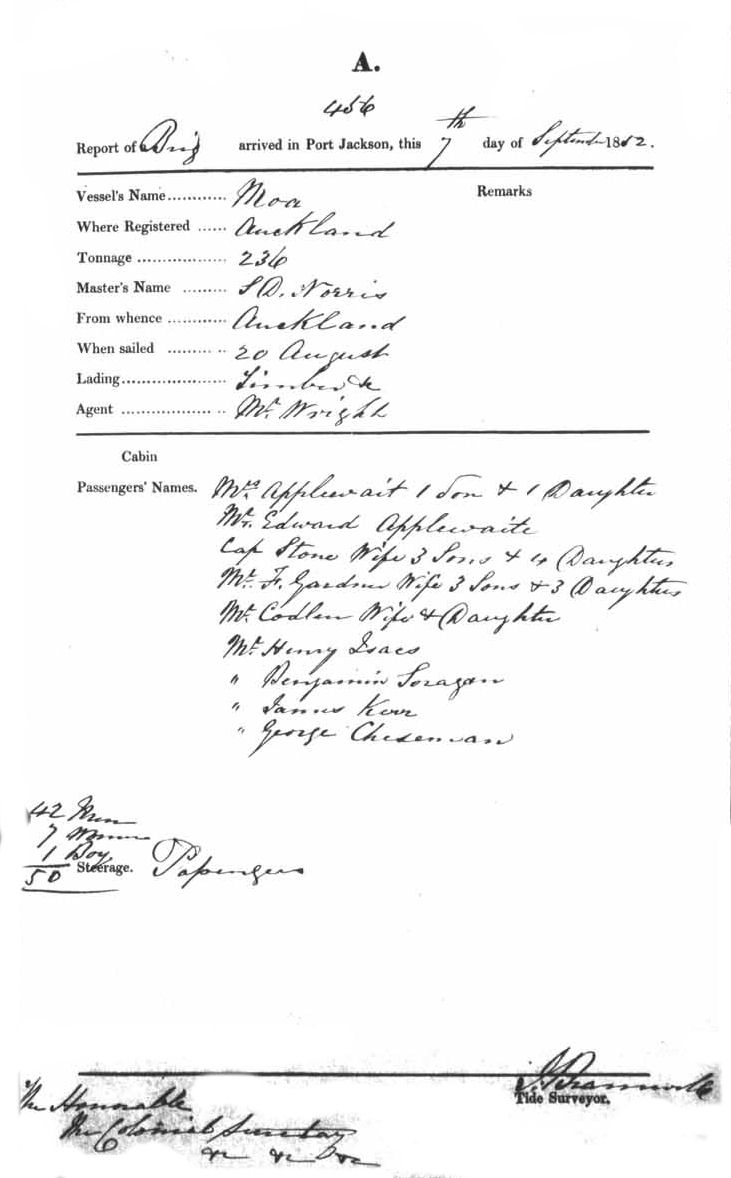 A.
456
Report of Brig arrived in Port Jackson, this 7th day of September 1852.
Vessel's Name............ Moa Remarks
Where Registered ...... Auckland
Tonnage .................. 236
Master's Name ......... S D. Norris
From whence ............ Auckland
When sailed ........... 20 August
Lading...................... Timber &c
Agent ..................... Mr. Wright
Cabin
Passengers' Names. Mrs. Applewait 1 Son & 1 Daughter
Mr. Edward Applewaite
Cap Stone Wife 3 Sons & 4 Daughters
Mr. F. Gardner Wife 3 Sons & 3 Daughters
Mr. Codlen Wife & Daughter
Mr. Henry Isacs
" Benjamin Soragan
" James Kerr
" George Cheseman
42 Men
7 Women
1 Boy
50 Steerage. Passengers
Tide Surveyor.
The Honorable
The Colonial Secretary
&c &c &c